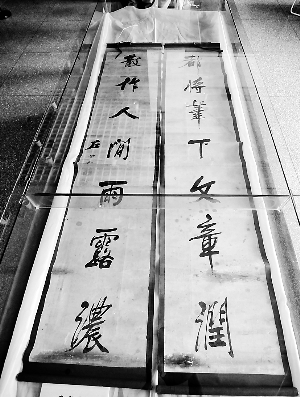 都將筆下文章潤
散作人間雨露濃